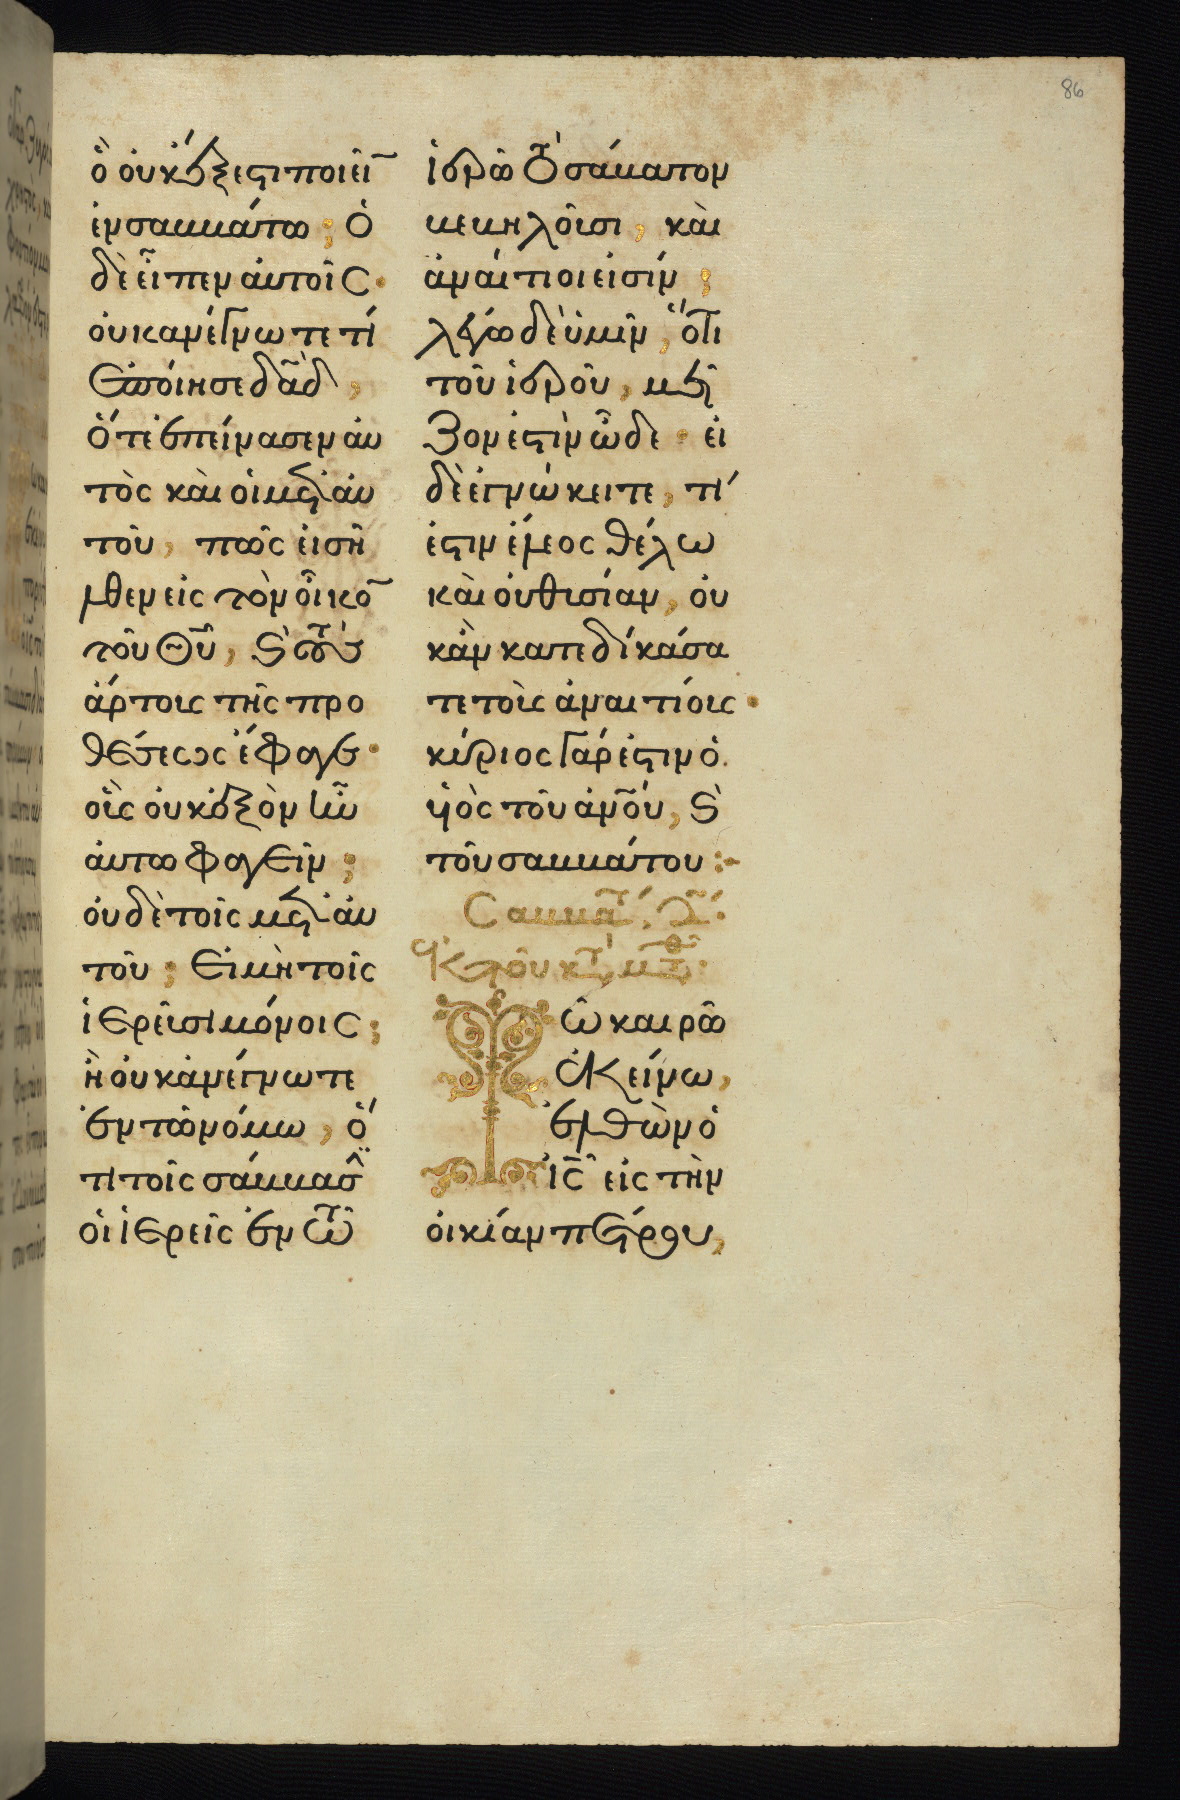 86
ὃ οὐκ ἔξεστι ποιεῖ̄
ἐν σαββάτω; Ὁ
δὲ εἶπεν αὐτοῖς·
οὐκ ἀνέγνωτε τί
ἐποίησε δᾱδ,
Ὅτε ἐπείνασεν αὐ
τὸς καὶ οἱ μετ' αὐ
τοῦ, πῶς εἰσῆ
λθεν εἰς τὸν οἶκο̄
τοῦ Θῡ, ϗ τοὺς
ἄρτους τῆς προ
θέσεως ἔφαγε·
οἷς οὐκ ἐξὸν ἦν
αὐτῶ φαγεῖν;
οὐδὲ τοῖς μετ' αὐ
τοῦ; Εἰ μὴ τοῖς
ἱερεῦσι μόνοις;
ἢ οὐκ ἀνέγνωτε
ἐν τῶ νόμω, ὅ
τι τοῖς σάββασι
οἱ ἱερεῖς ἐν τῶ
ἱερῶ τὸ σάββατον
βεβηλοῦσι, καὶ
ἀναίτιοι εἰσίν;
λέγω δὲ ὑμῖν, ὅτι
τοῦ ἱεροῦ, μεῖ
ζον ἐστὶν ὧδε· εἰ
δὲ ἐγνώκειτε, τί
ἐστιν ἔλεος θέλω
καὶ οὐ θυσίαν, οὐ
κἂν κατεδικάσα
τε τοὺς ἀναιτίους·
κύριος γάρ ἐστιν ὁ
υἱὸς τοῦ ἀνο̄υ, ϗ
τοῦ σαββάτου:
Σαββάτ
Ἐκ τοῦ κτ μτθ
Τῶ καιρῶ
ἐκείνω,
ἐλθὼν ὁ
ῑς̄ εἰς τὴν
οἰκίαν πέτρου,